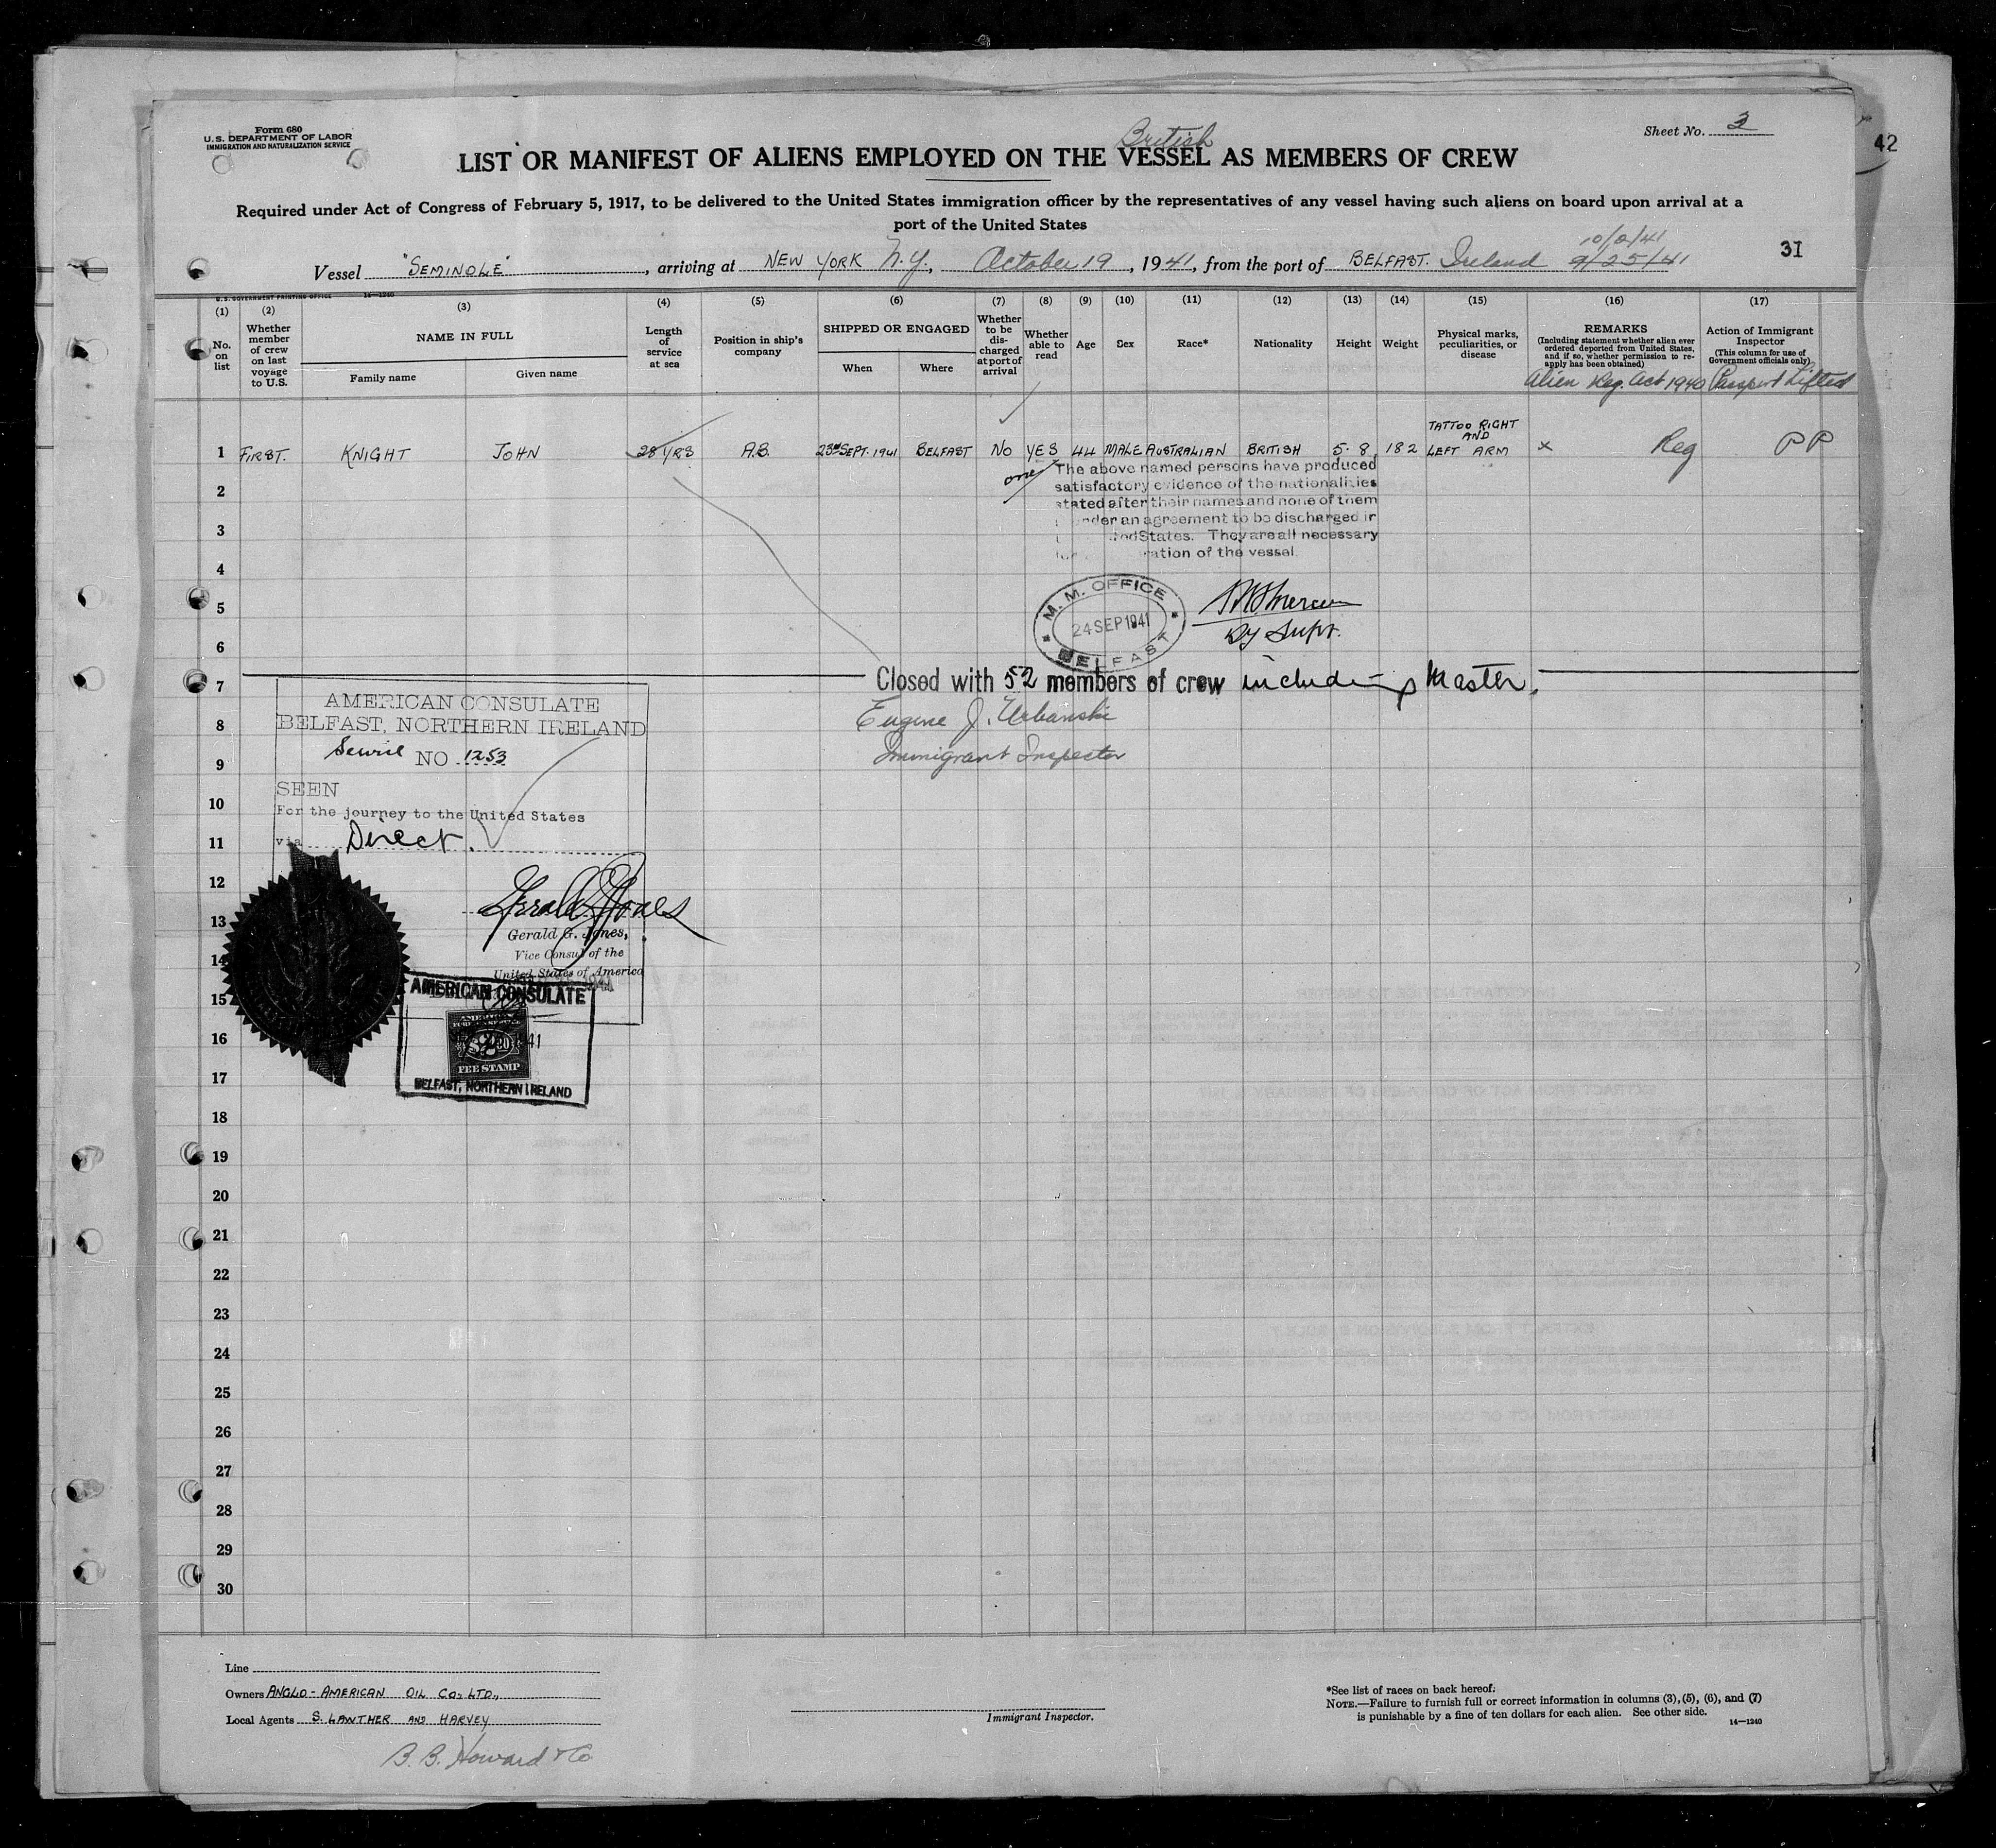 Form 680
U. S. DEPARTMENT OF LABOR
IMMIGRATION AND NATURALIZATION SERVICE
Sheet No. 3
42
British
LIST OR MANIFEST OF ALIENS EMPLOYED ON THE VESSEL AS MEMBERS OF CREW
Required under Act of Congress of February 5, 1917, to be delivered to the United States immigration officer by the representatives of any vessel having such aliens on board upon arrival at a
port of the United States
31
Vessel "SEMINOLE", arriving at NEW YORK N.Y., October 19, 1941, from the port of BELFAST. Ireland 9/25/41
U. S. GOVERNMENT PRINTING OFFICE 14—1240
(1) No. on list
(2) Whether member of crew on last voyage to U.S.
(3) NAME IN FULL
Family name Given name
(4) Length of service at sea
(5) Position in ship's company
(6) SHIPPED OR ENGAGED
When Where
(7) Whether to be discharged at port of arrival
(8) Whether able to read
(9) Age
(10) Sex
(11) Race*
(12) Nationality
(13) Height
(14) Weight
(15) Physical marks, peculiarities, or disease
(16) REMARKS
(Including statement whether alien ever ordered deported from United States, and if so, whether permission to re-apply has been obtained)
Alien Reg. Act 1940
(17) Action of Immigrant Inspector
(This column for use of Government officials only)
Passport Lifted
1 FIRST. KNIGHT JOHN 28 YRS A.B. 23rd SEPT. 1941 BELFAST NO YES 44 MALE AUSTRALIAN BRITISH 5-8 182 TATTOO RIGHT AND LEFT ARM x Reg PP
one
The above named persons have produced
satisfactory evidence of the nationalities
stated after their names and none of them
under an agreement to be discharged in
States. They are all necessary
of the vessel.
2
3
4
5
6
M. M. OFFICE
24 SEP 1941
BELFAST
Dy Supt.
7
Closed with 52 members of crew including Master.
Eugene J. Urbanski
Immigrant Inspector
AMERICAN CONSULATE
BELFAST, NORTHERN IRELAND
NO 1253
SEEN
For the journey to the United States
via Direct.
Gerald G. Jones,
Vice Consul of the
United States of America
AMERICAN CONSULATE
1941
FEE STAMP
BELFAST, NORTHERN IRELAND
8
9
10
11
12
13
14
15
16
17
18
19
20
21
22
23
24
25
26
27
28
29
30
Line
Owners ANGLO-AMERICAN OIL CO., LTD.,
Local Agents S. LAWTHER AND HARVEY
B. B. Howard & Co
Immigrant Inspector.
*See list of races on back hereof.
NOTE.—Failure to furnish full or correct information in columns (3), (5), (6), and (7)
is punishable by a fine of ten dollars for each alien. See other side.
14—1240